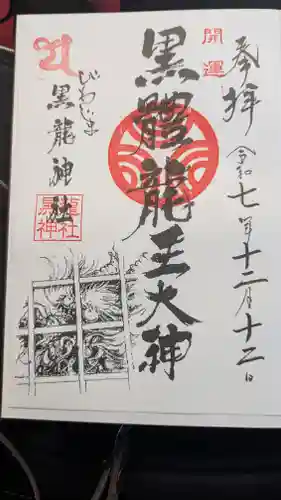 開運
奉拝
令和七年十二月十二日
黒體龍王大神
びわじま
黒龍神社
黒龍神社